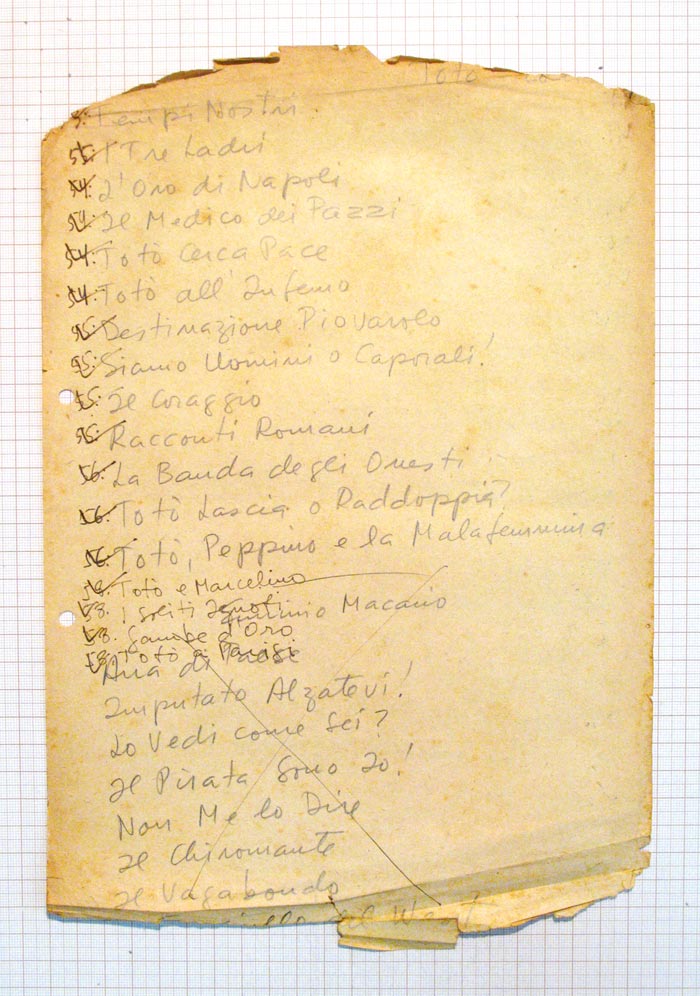 Totò
Tempi Nostri
55: I Tre Ladri
54: L'Oro di Napoli
54: Il Medico dei Pazzi
54: Totò Cerca Pace
54: Totò all'Inferno
55: Destinazione Piovarolo
55: Siamo Uomini o Caporali!
55: Il Coraggio
55: Racconti Romani
56. La Banda degli Onesti
56. Totò Lascia o Raddoppia?
56. Totò, Peppino e la Malafemmina
58. Totò e Marcelino
58. I Soliti Ignoti
Erminio Macario
58. Gambe d'Oro
58. Totò a Parigi
Aria di Paese
Imputato Alzatevi!
Lo Vedi come Sei?
Il Pirata Sono Io!
Non Me lo Dire
Il Chiromante
Il Vagabondo
del West